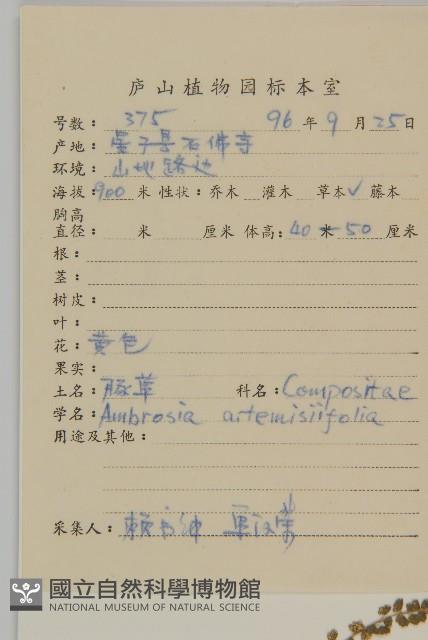 庐山植物园标本室
号数：375 96年9月25日
产地：星子县石佛寺
环境：山地路边
海拔：900米 性状：乔木 灌木 草本✓ 藤本
胸高
直径： 米 厘米 体高：40米50厘米
根：
茎：
树皮：
叶：
花：黄色
果实：
土名：豚草 科名：Compositae
学名：Ambrosia artemisiifolia
用途及其他：
采集人：赖书绅
國立自然科學博物館
NATIONAL MUSEUM OF NATURAL SCIENCE